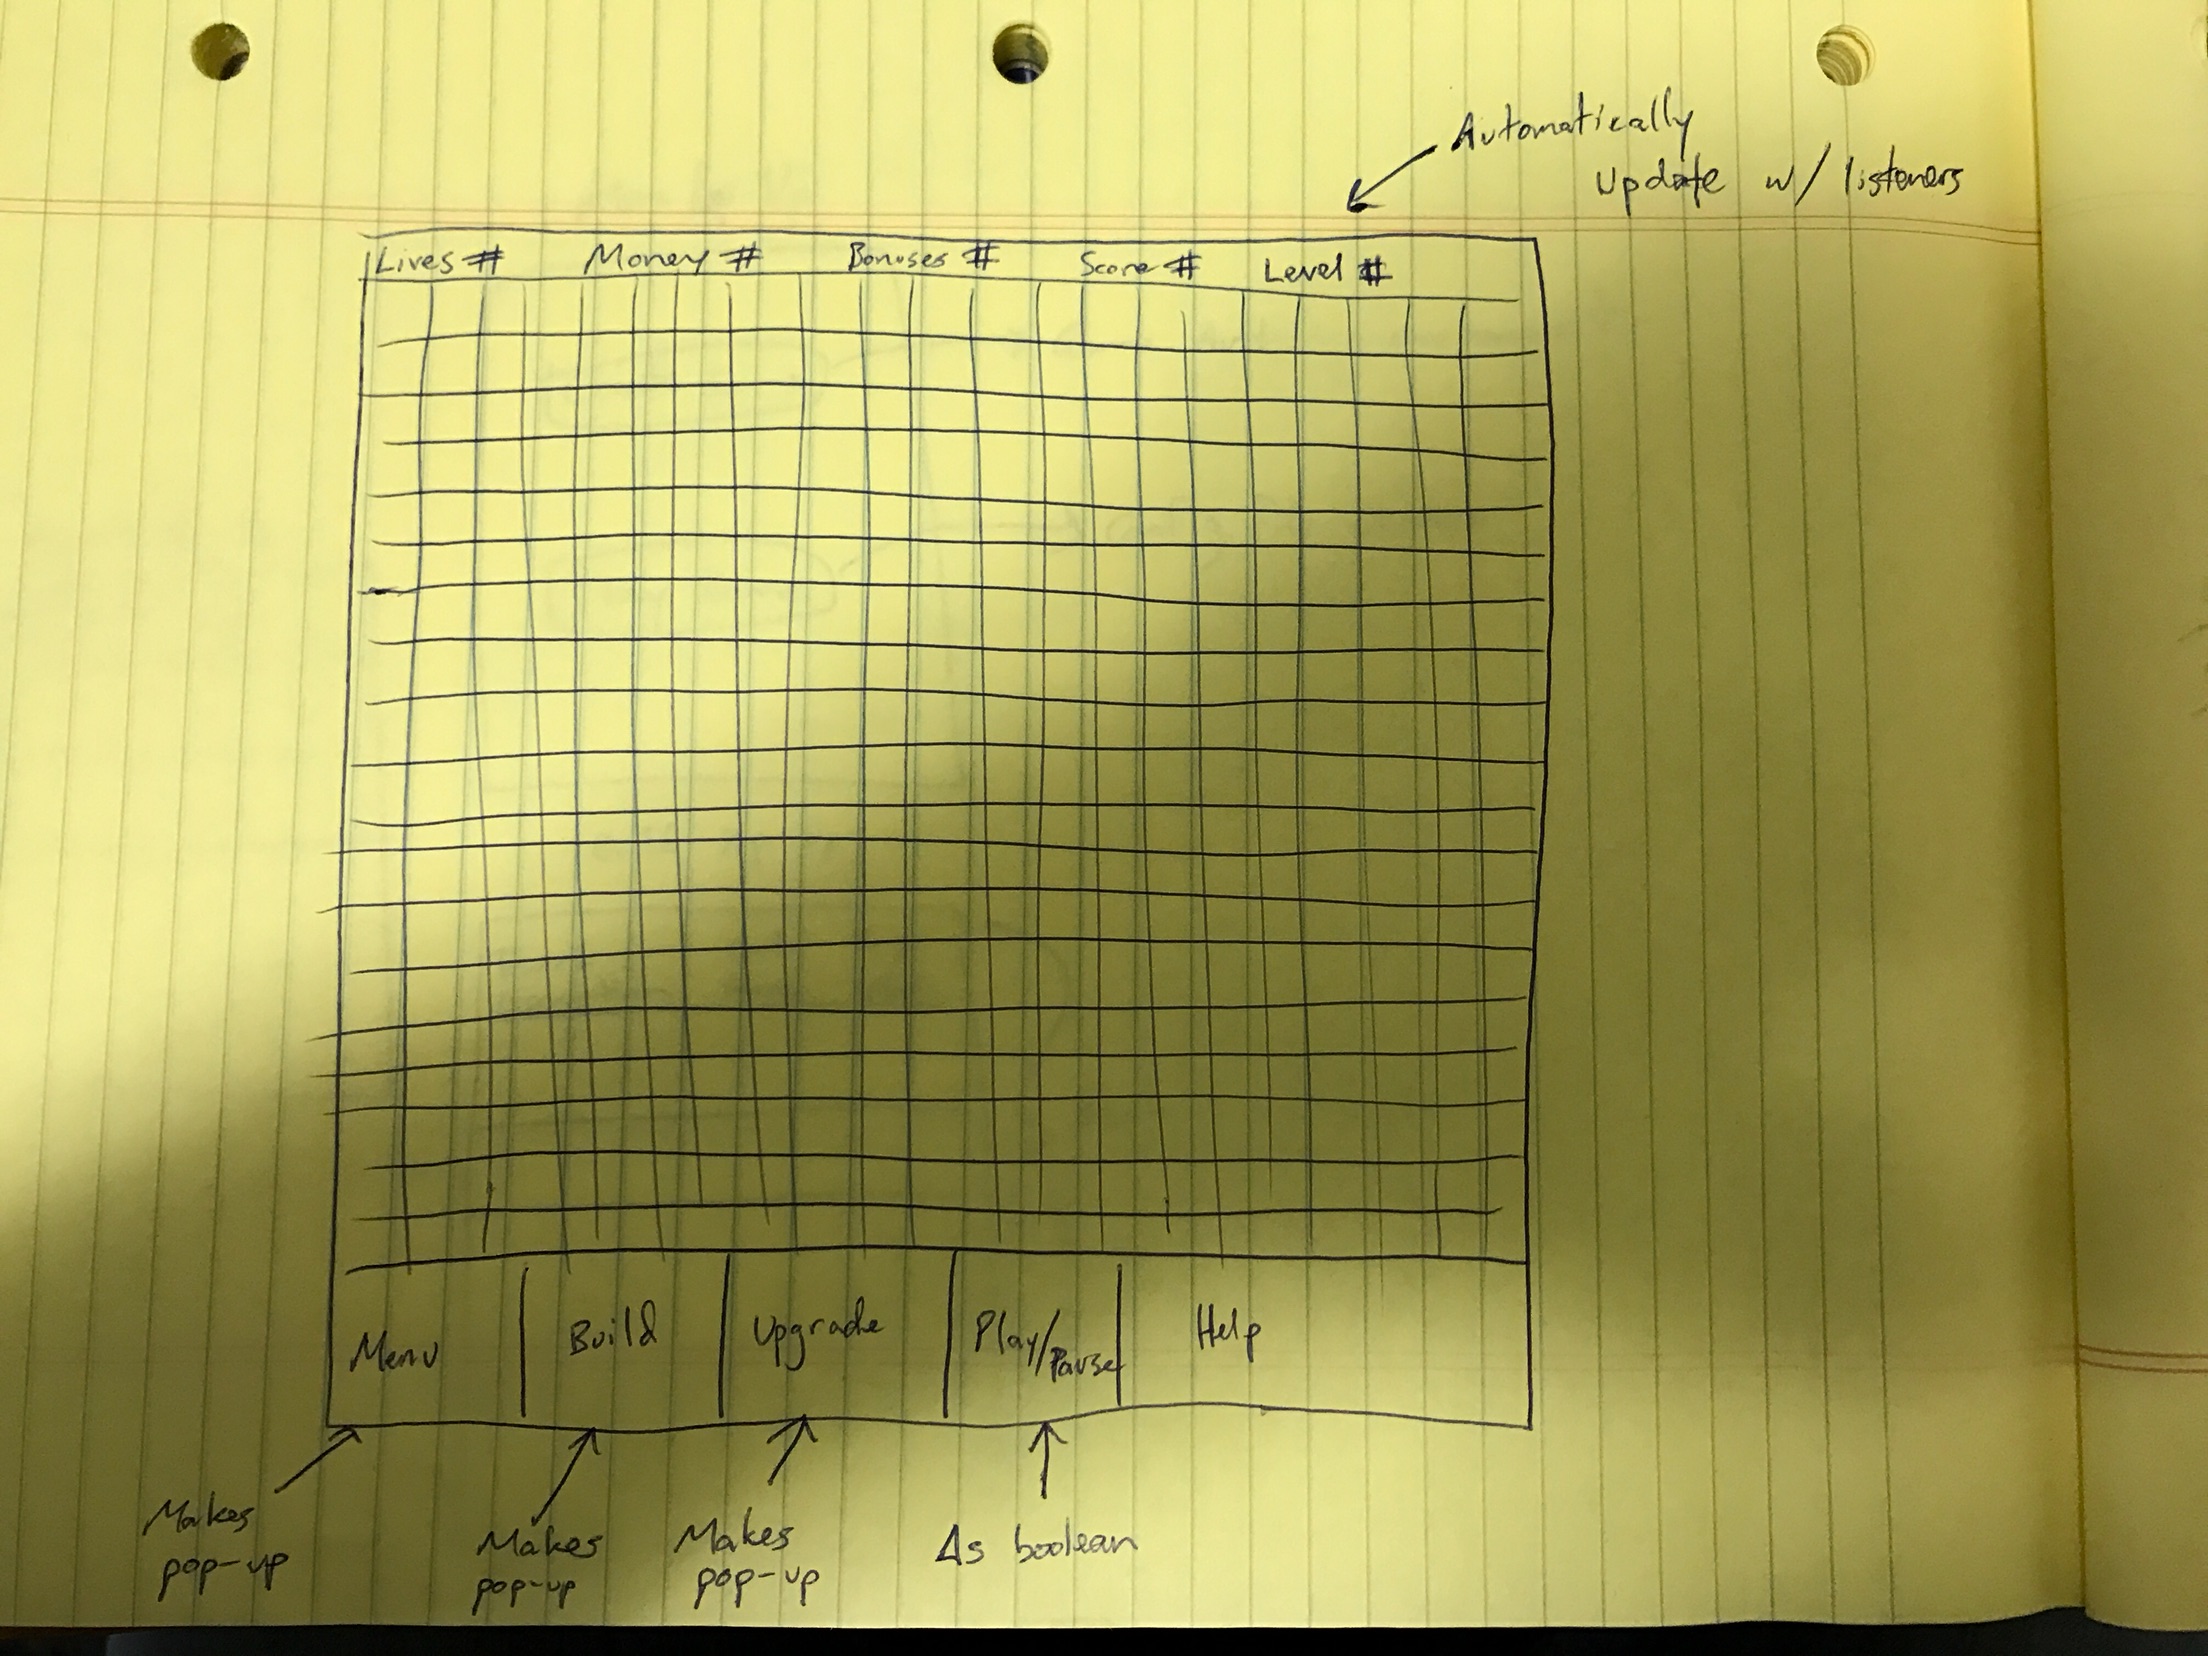 Automatically
Update w/ listeners
Lives # Money # Bonuses # Score # Level #
Menu Build Upgrade Play/Pause Help
Makes
pop-up
Makes
pop-up
Makes
pop-up
As boolean